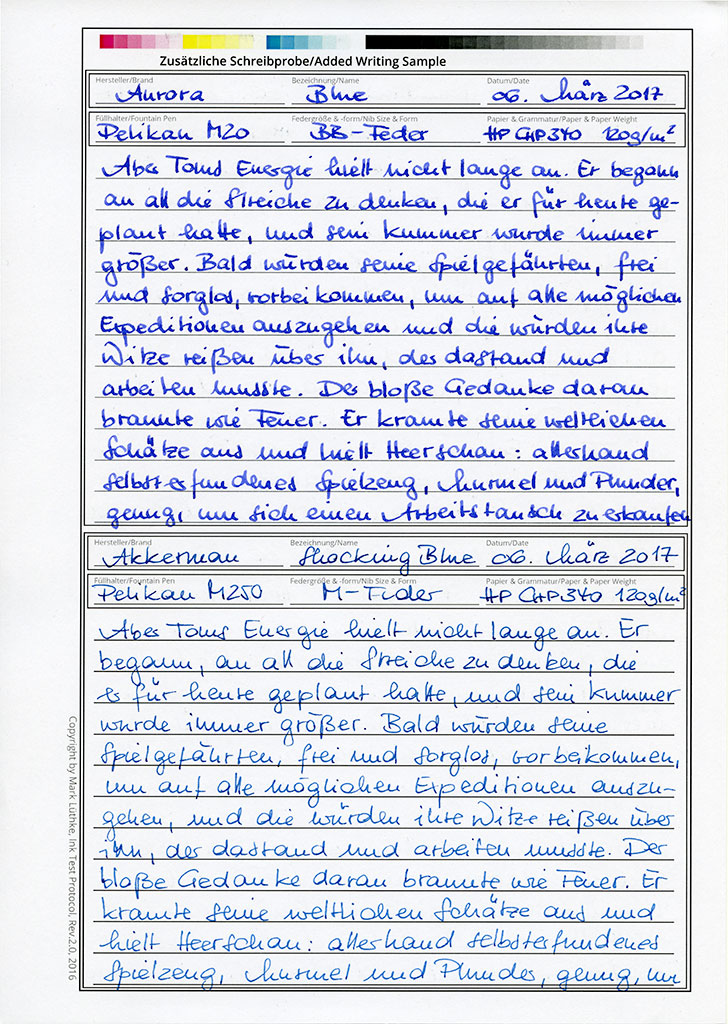 Zusätzliche Schreibprobe/Added Writing Sample
Hersteller/Brand Bezeichnung/Name Datum/Date
Aurora Blue 06. März 2017
Füllhalter/Fountain Pen Federgröße & -form/Nib Size & Form Papier & Grammatur/Paper & Paper Weight
Pelikan M20 BB-Feder HP CHP340 120g/m²
Aber Toms Energie hielt nicht lange an. Er begann
an all die Streiche zu denken, die er für heute ge-
plant hatte, und sein Kummer wurde immer
größer. Bald würden seine Spielgefährten, frei
und sorglos, vorbeikommen, um auf alle möglichen
Expeditionen auszugehen und die würden ihre
Witze reißen über ihn, der dastand und
arbeiten musste. Der bloße Gedanke daran
brannte wie Feuer. Er kramte seine weltlichen
Schätze aus und hielt Heerschau: allerhand
selbsterfundenes Spielzeug, Murmel und Plunder,
genug, um sich einen Arbeitstausch zu erkaufen
Hersteller/Brand Bezeichnung/Name Datum/Date
Akkerman Shocking Blue 06. März 2017
Füllhalter/Fountain Pen Federgröße & -form/Nib Size & Form Papier & Grammatur/Paper & Paper Weight
Pelikan M250 M-Feder HP CHP340 120g/m²
Aber Toms Energie hielt nicht lange an. Er
begann, an all die Streiche zu denken, die
er für heute geplant hatte, und sein Kummer
wurde immer größer. Bald würden seine
Spielgefährten, frei und sorglos, vorbeikommen,
um auf alle möglichen Expeditionen auszu-
gehen, und die würden ihre Witze reißen über
ihn, der dastand und arbeiten musste. Der
bloße Gedanke daran brannte wie Feuer. Er
kramte seine weltlichen Schätze aus und
hielt Heerschau: allerhand selbsterfundenes
Spielzeug, Murmel und Plunder, genug, um
Copyright by Mark Lüthke, Ink Test Protocol, Rev.2.0, 2016